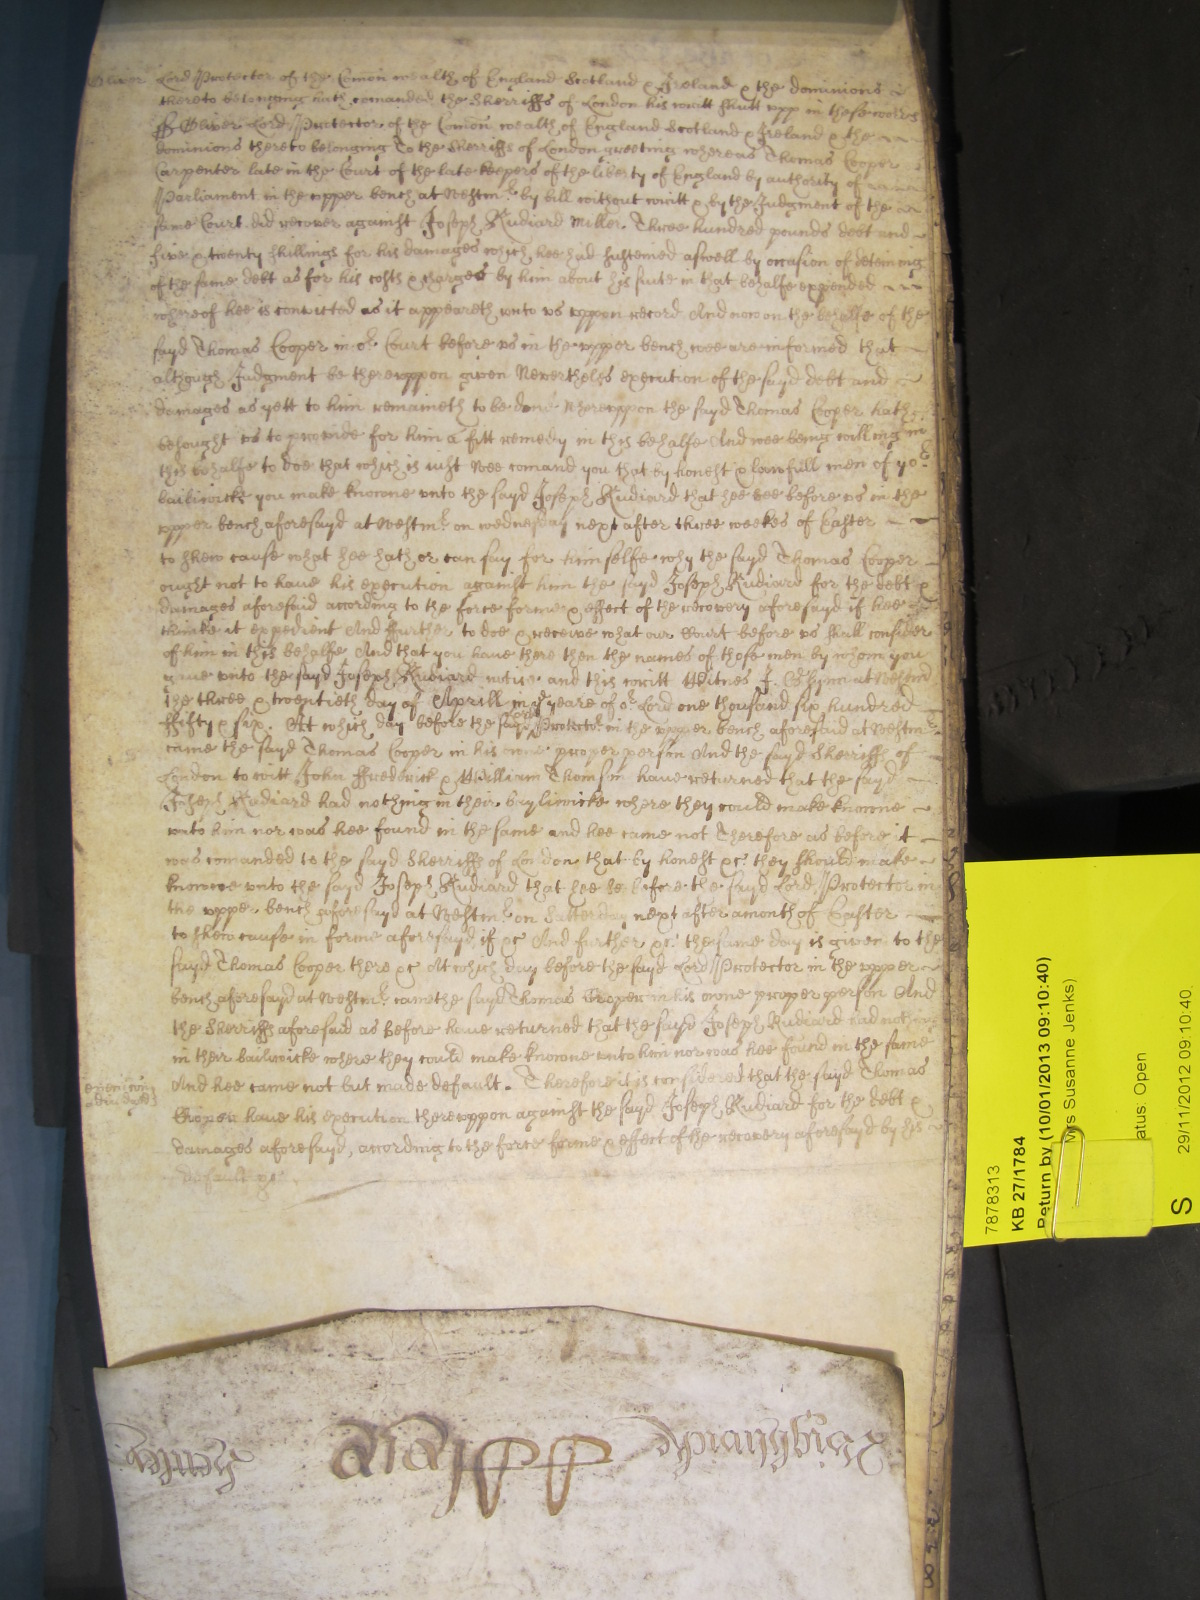 Oliver Lord Protector of the Comon wealth of England Scotland & Ireland & the dominions
thereto belonging hath comanded the Sherriffs of London his writt shutt upp in these words
ss Oliver Lord Protector of the Comon wealth of England Scotland & Ireland & the
dominions thereto belonging To the Sherriffs of London greeting whereas Thomas Cooper
Carpenter late in the Court of the late keepers of the liberty of England by authority of
Parliament in the upper bench at Westmr by bill without writt & by the Judgment of the
same Court did recover against Joseph Rudiard Miller Three hundred pounds debt and
five & twenty shillings for his damages which hee had susteined aswell by occasion of deteining
of the same debt as for his costs & charges by him about his suite in that behalfe expended
whereof hee is convicted as it appeareth unto us uppon record And now on the behalfe of the
sayd Thomas Cooper in or Court before us in the upper bench wee are informed that
although Judgment be thereuppon given Neverthelss execution of the sayd debt and
damages as yett to him remaineth to be done Whereuppon the sayd Thomas Cooper hath
besought us to provide for him a fitt remedy in this behalfe And wee being willing in
this behalfe to doe that which is iust Wee comand you that by honest & lawfull men of yor
bailiwicke you make knowne unto the sayd Joseph Rudiard that hee bee before us in the
upper bench aforesayd at Westmr on wednesday next after three weekes of Easter
to shew cause what hee hath or can say for himselfe why the sayd Thomas Cooper
ought not to have his execution against him the sayd Joseph Rudiard for the debt &
damages aforesaid according to the force forme & effect of the recovery aforesayd if hee
thinke it expedient And ffurther to doe & receive what our Court before us shall consider
of him in this behalfe And that you have there then the names of those men by whom you
give unto the sayd Joseph Rudiard notice and this writt Witnes J. Glynn at Westmr
the three & twentieth day of Aprill in ye yeare of or Lord one thousand six hundred
ffifty & six. At which day before the sayd Lord Protector in the upper bench aforesaid at Westmr
came the sayd Thomas Cooper in his owne proper person And the sayd Sherriffs of
London to witt John ffrederick & William Thomson have returned that the sayd
Joseph Rudiard had nothing in their bayliwicke where they could make knowne
unto him nor was hee found in the same and hee came not Therefore as before it
was comanded to the sayd Sherriffs of London that by honest &c they should make
knowne unto the sayd Joseph Rudiard that hee be before the sayd Lord Protector in
the upper bench aforesayd at Westmr on Satterday next after a month of Easter
to shew cause in forme aforesayd if &c And further &c the same day is given to the
sayd Thomas Cooper there &c At which day before the sayd Lord Protector in the upper
bench aforesayd at Westmr came the sayd Thomas Cooper in his owne proper person And
the Sherriffs aforesaid as Before have returned that the sayd Joseph Rudiard had nothing
in their bailiwicke where they could make knowne unto him nor was hee found in the same
And hee came not but made default. Therefore it is considered that the sayd Thomas
execucon
adiudged
Cooper have his execution thereuppon against the sayd Joseph Rudiard for the debt &
damages aforesayd, according to the force forme & effect of the recovery aforesayd by his
default &c.
7878313
KB 27/1784
Return by (10/01/2013 09:10:40)
Mrs Susanne Jenks)
atus: Open
S
29/11/2012 09:10:40